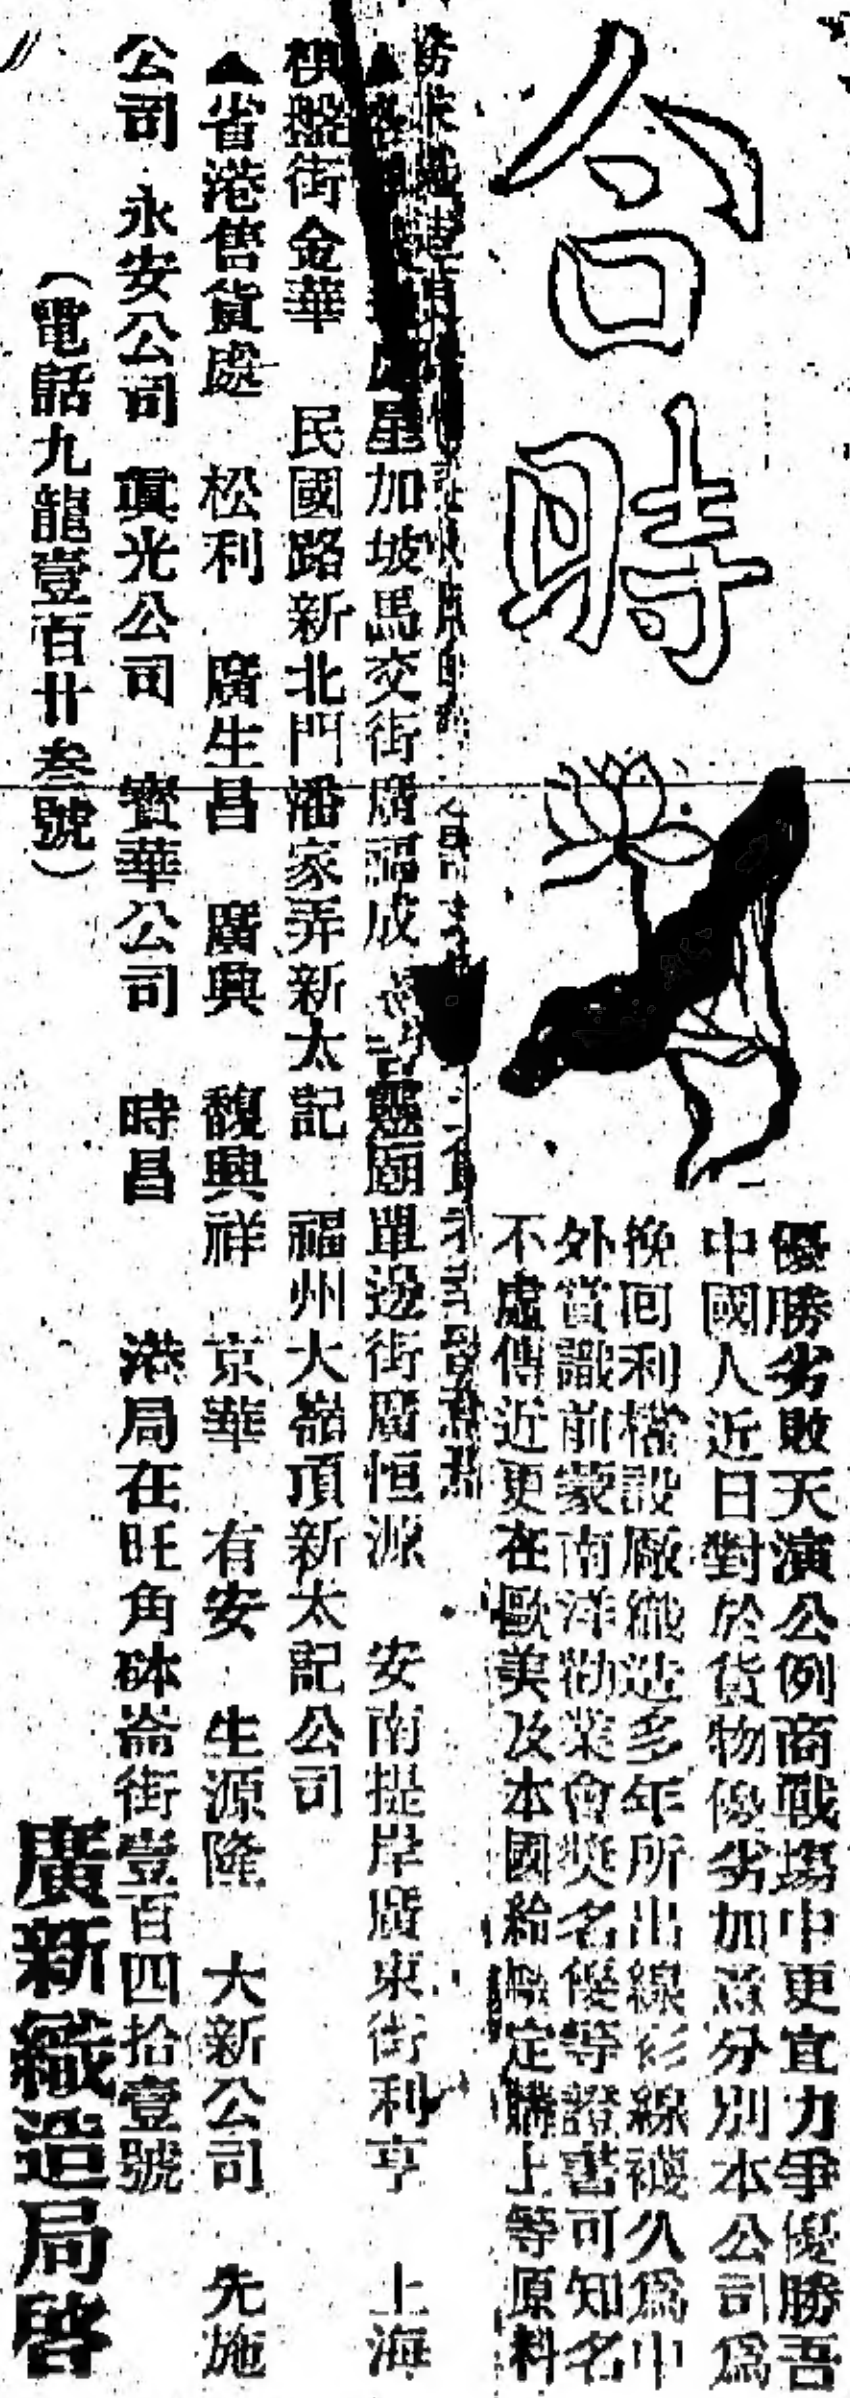 合時
優勝劣敗天演公例商戰塲中更宜力爭優勝吾
中國人近日對於貨物優劣加意分別本公司爲
挽囘利權設廠織造多年所出線衫線襪久爲中
外賞識前蒙南洋勸業會奬名優等證書可知名
不虛傳近更在歐美及本國給 定購上等原料
星加坡馬交街廣福成 靈廟單邊街廣恒源 安南提岸廣東街利亨 上海
棋盤街金華 民國路新北門潘家弄新太記 福州大嶺頂新太記公司
▲省港售貨處 松利 廣生昌 廣興 馥興祥 京華 有安 生源隆 大新公司 先施
公司 永安公司 眞光公司 寶華公司 時昌 港局在旺角砵崙街壹百四拾壹號
(電話九龍壹百廿叁號)
廣新織造局啓